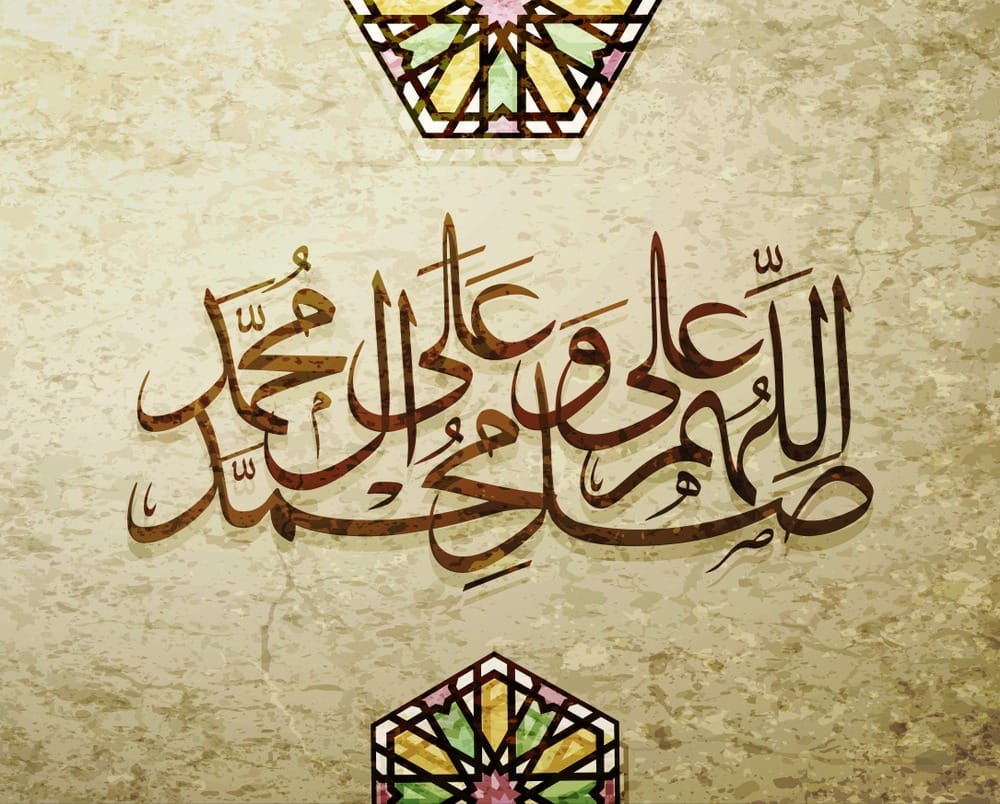 اللّهم صل على مُحمّد وعَلى ال مُحمّد